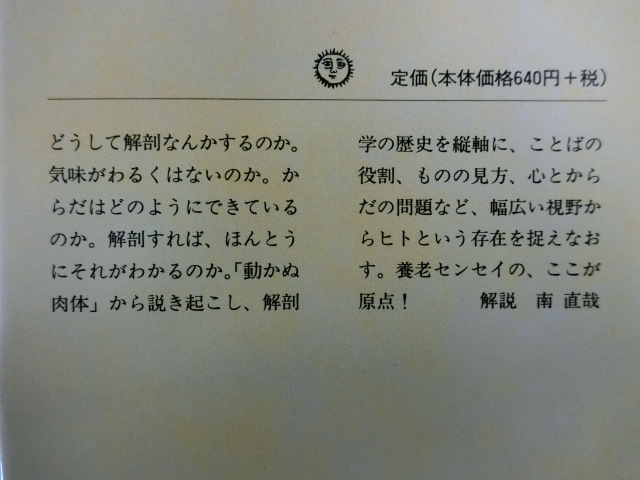 定価(本体価格640円+税)
どうして解剖なんかするのか。
気味がわるくはないのか。か
らだはどのようにできている
のか。解剖すれば、ほんとう
にそれがわかるのか。「動かぬ
肉体」から説き起こし、解剖
学の歴史を縦軸に、ことばの
役割、ものの見方、心とから
だの問題など、幅広い視野か
らヒトという存在を捉えなお
す。養老センセイの、ここが
原点! 解説 南 直哉